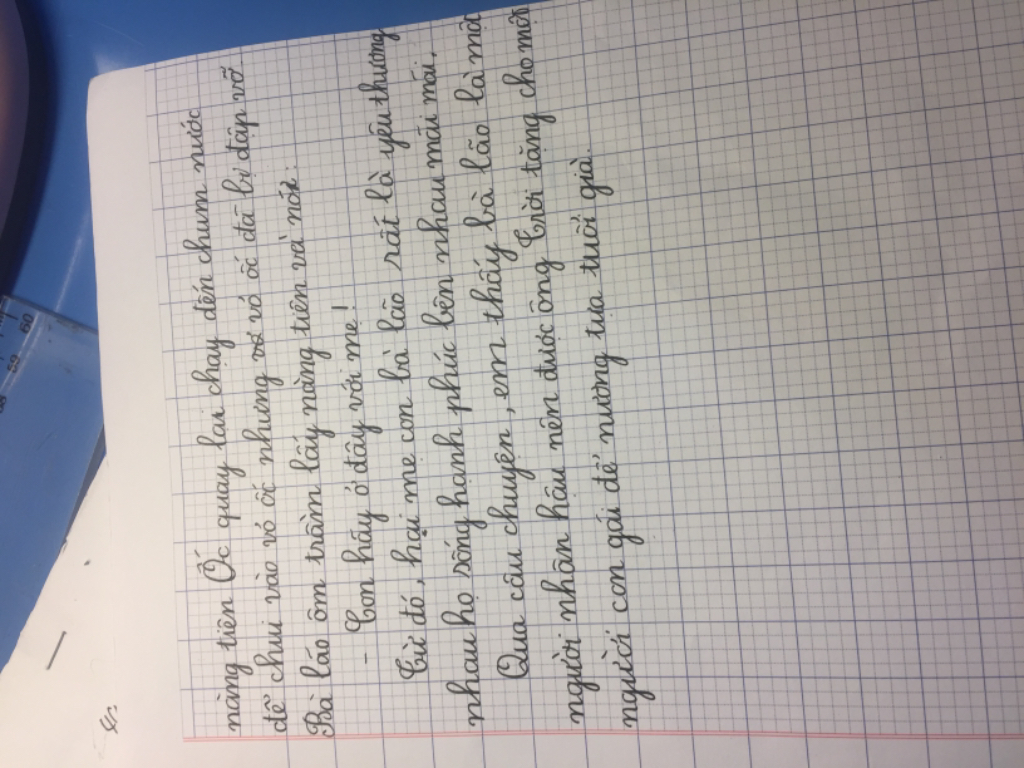 nàng tiên Ốc quay lại chạy đến chum nước
để chui vào vỏ ốc nhưng vỏ ốc đã bị đập vỡ
Bà lão ôm trầm lấy nàng tiên và nói:
- Con hãy ở đây với mẹ!
Từ đó, hai mẹ con bà lão rất là yêu thương
nhau họ sống hạnh phúc bên nhau mãi mãi.
Qua câu chuyện, em thấy bà lão là một
người nhân hậu nên được ông Trời tặng cho một
người con gái để nương tựa tuổi già.
60
59
58